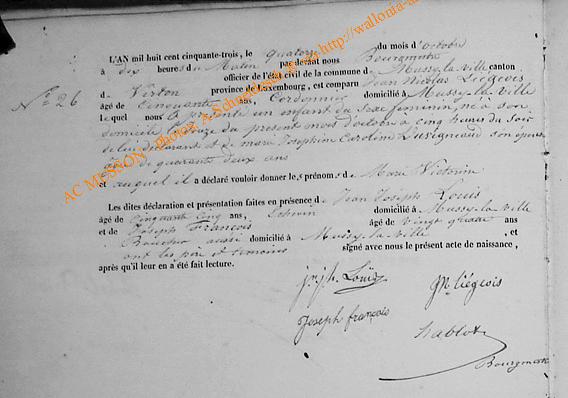 L'AN mil huit cent cinquante-trois, le quatorze du mois d'octobre
à dix heures du Matin par devant nous Bourgmestre
officier de l'état civil de la commune de Mussy-la-ville canton
de Virton province de Luxembourg, est comparu Jean Nicolas Liégeois
N° 26
âgé de Cinquante ans, Cordonnier domicilié à Mussy-la-Ville
lequel nous a présenté un enfant du sexe féminin, né à son
domicile le onze du present mois d'octobre à cinq heures du Soir
de lui déclarant et de marie Josephine Caroline son épouse
agée de quarante deux ans
et auquel il a déclaré vouloir donner le prénoms de Marie Victorine
Les dites déclaration et présentation faites en présence de Jean Joseph Louis
âgé de Cinquante Cinq ans, domicilié à Mussy-la-Ville
et de Joseph François âgé de vingt quatre ans
aussi domicilié à Mussy-la-ville, et
ont les père et témoins signé avec nous le présent acte de naissance,
après qu'il leur en a été fait lecture.
jn jh. Louis
JN Liégeois
Joseph françois
Bourgmestre
AC MUSSON - Photos A. Schaer http://wallonia-a